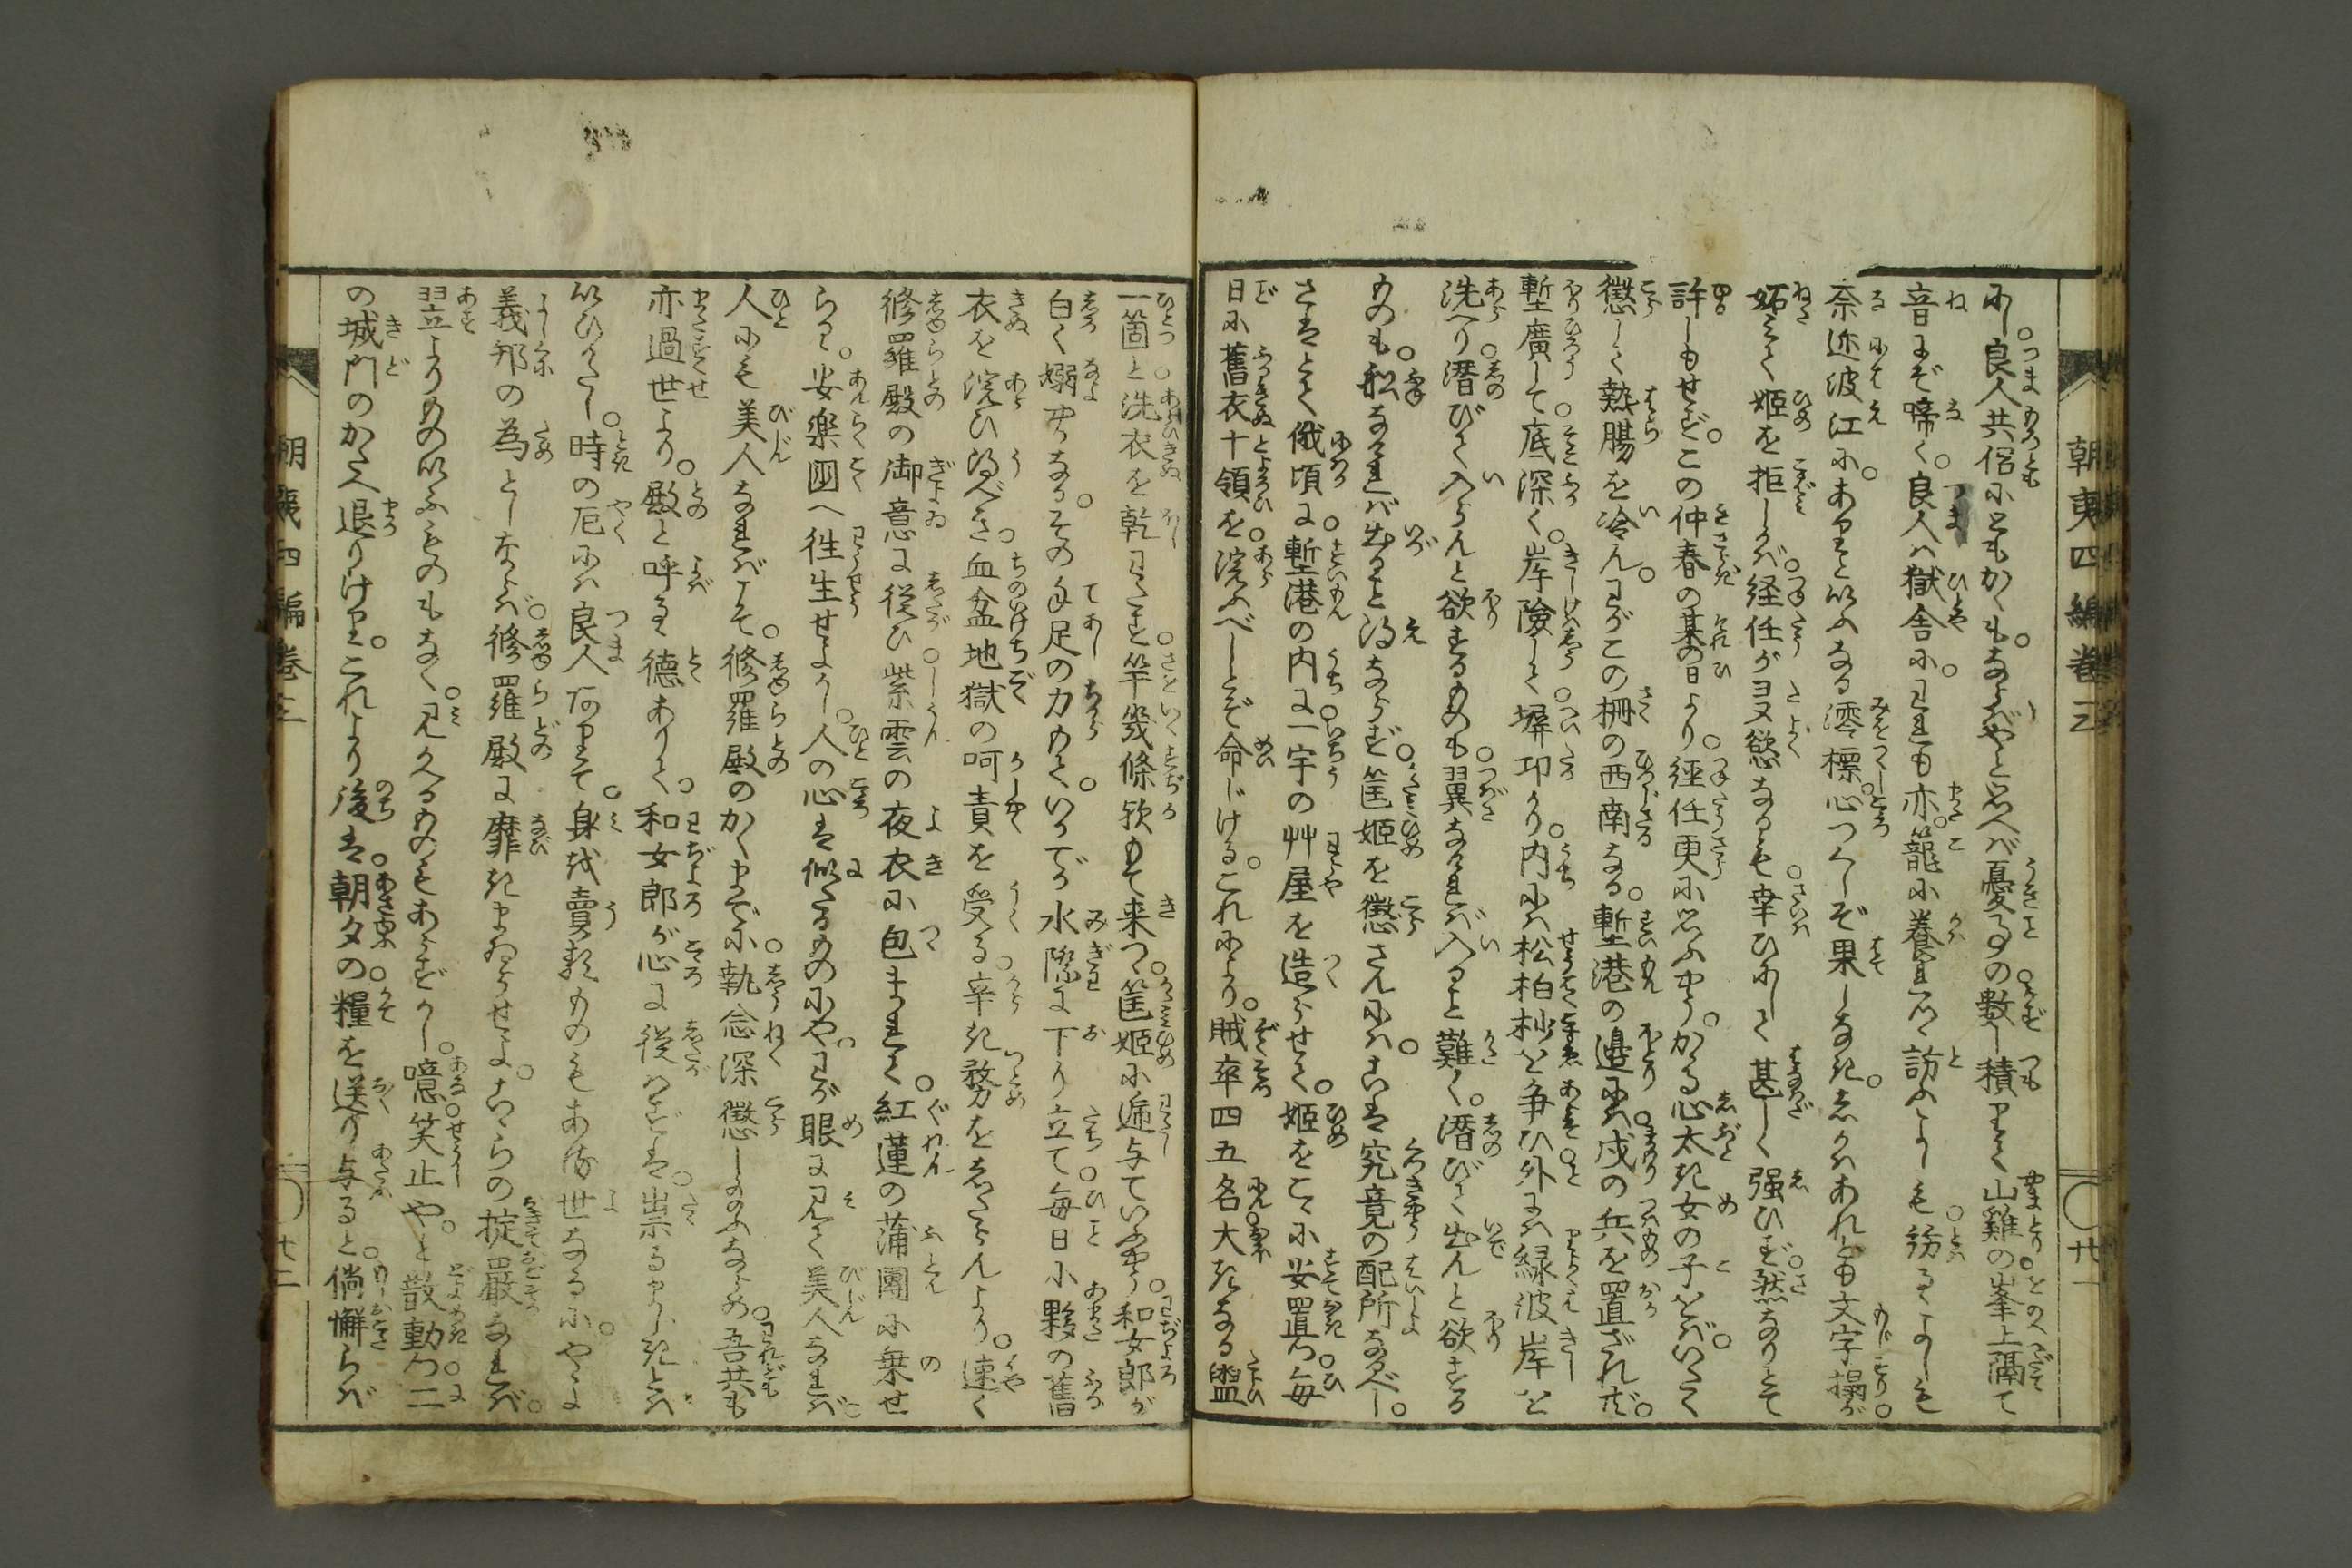 朝夷四編巻三
廿一
に。良人共侶にともかくも。ならばやと思へば憂事の数し積りて山雞の峯上隔て
音にぞ啼く。良人は獄舎に。われも亦。籠に養れて訪ふよしも
奈迩波江に。ありと以ふなる澪標。心つくしぞ果しなき。しかはあれども文字搨が
妬みて姫を拒しかば。経任がヨヌ慾なるも幸ひにして甚しく強ひず。然なりとて
許しもせず。この仲春の某の日より。経任更に思ふやう。かゝる心太き女の子をば。いたく
懲して熱腸を冷ん。わがこの柵の西南なる。塹港の邊には。戍の兵を置ざれども。
塹廣して底深く。岸険しく塀卬り。内には松柏杪を争ひ。外には緑波岸を
洗へり。潜びて入らんと欲するものも。翼なければ入ると難く。潜びて出んと欲する
ものも。船なければ出ると得ならず。筐姫を懲さんには。こは究竟の配所なるべし。
さはとて俄頃に。塹港の内に一宇の艸屋を造らせて。姫をこゝに安置つ。毎
日に舊衣十領を。浣ふべしとぞ命じける。これにより。賊卒四五名大きなる盥
一箇と洗衣を乾すべき。竿幾條欤もて来つ。筐姫に逓与していふやう。和女郎が
白く嫋やかなる。その手足の力もて。いかでか水際に下り立て。毎日に夥の舊
衣を浣ひ得べき。血盆地獄の呵責を受る。辛き務をしたらんより。速く
修羅殿の御意に従ひ。紫雲の夜衣に包まれて。紅蓮の蒲團に乗せ
られ。安楽囯へ徃生せよかし。人の心は似たるものにや。わが眼に見て美人なれば。
人にも美人なればこそ。修羅殿のかくまでに。執念深く懲しのふならめ。吾共も
亦過世より。殿と呼るゝ徳ありて。和女郎が心に従はずは。祟るまじきとは
以ひがたし。時の厄には良人ありて。身を賣るものもある世なるに。やよ
義邦の為とし思はゞ。修羅殿に靡きまゐらせよ。こゝらの掟嚴なれば。
翌よりもの以ふものもなく。見かへるものもあらずかし。噫笑止や。と散動つ二
の城門のかたへ退りけり。これより後は。朝夕の糧を送り与ると。倘懈らば
朝夷四編巻三
廿二